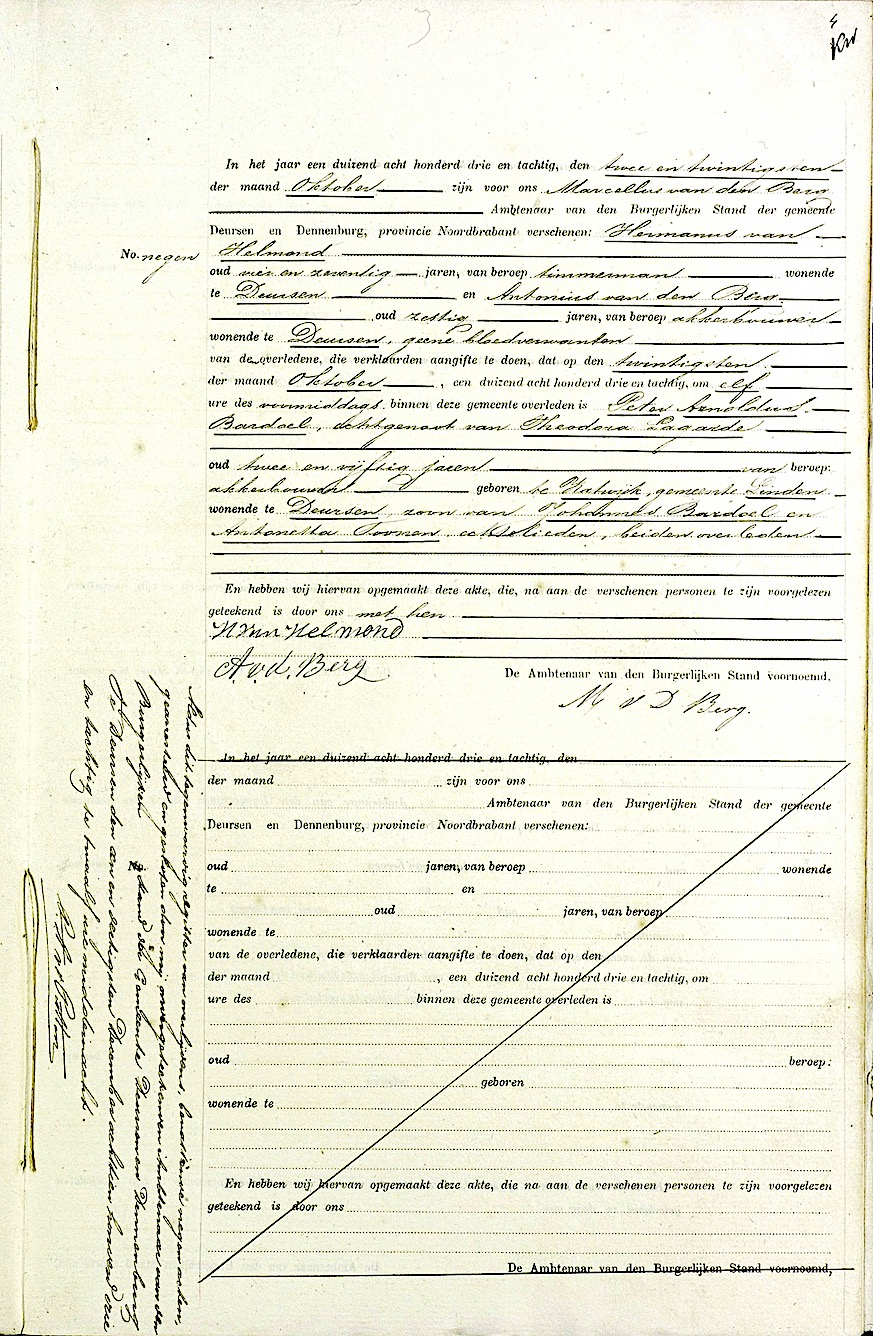 3
4
In het jaar een duizend acht honderd drie en tachtig, den twee en twintigsten
der maand Oktober zijn voor ons Marcellus van den Berg
Ambtenaar van den Burgerlijken Stand der gemeente
Deursen en Dennenburg, provincie Noordbrabant verschenen: Hermanus van
No. negen Helmond
oud vier en zeventig jaren, van beroep timmerman wonende
te Deursen en Antonius van den Berg
oud zestig jaren, van beroep akkerbouwer
wonende te Deursen, geene bloedverwanten
van de overledene, die verklaarden aangifte te doen, dat op den twintigsten
der maand Oktober, een duizend acht honderd drie en tachtig, om elf
ure des voormiddags binnen deze gemeente overleden is Peter Arnoldus
Bardoel, echtgenoot van Theodora Lagarde
oud twee en vijftig jaren van beroep:
akkerbouwer geboren te Katwijk, gemeente Linden
wonende te Deursen, zoon van Johannes Bardoel en
Antonetta Toonen, echtelieden, beiden overleden
En hebben wij hiervan opgemaakt deze akte, die, na aan de verschenen personen te zijn voorgelezen
geteekend is door ons met hen
H van Helmond
A. v. d. Berg
De Ambtenaar van den Burgerlijken Stand voornoemd,
M v D Berg.
In het jaar een duizend acht honderd drie en tachtig, den
der maand zijn voor ons
Ambtenaar van den Burgerlijken Stand der gemeente
Deursen en Dennenburg, provincie Noordbrabant verschenen:
No.
oud jaren, van beroep wonende
te en
oud jaren, van beroep
wonende te
van de overledene, die verklaarden aangifte te doen, dat op den
der maand , een duizend acht honderd drie en tachtig, om
ure des binnen deze gemeente overleden is
oud beroep:
geboren
wonende te
En hebben wij hiervan opgemaakt deze akte, die na aan de verschenen personen te zijn voorgelezen
geteekend is door ons
De Ambtenaar van den Burgerlijken Stand voornoemd,
Aldus dit tegenwoordig register van overlijden, bevattende negen acten,
gearresteerd en gesloten door mij ondergeteekenden Ambtenaar van den
Burgerlijken Stand der Gemeente Deursen en Dennenburg
Te Deursen den een en dertigsten December achttien honderd drie
en tachtig te twaalf ure middernacht.